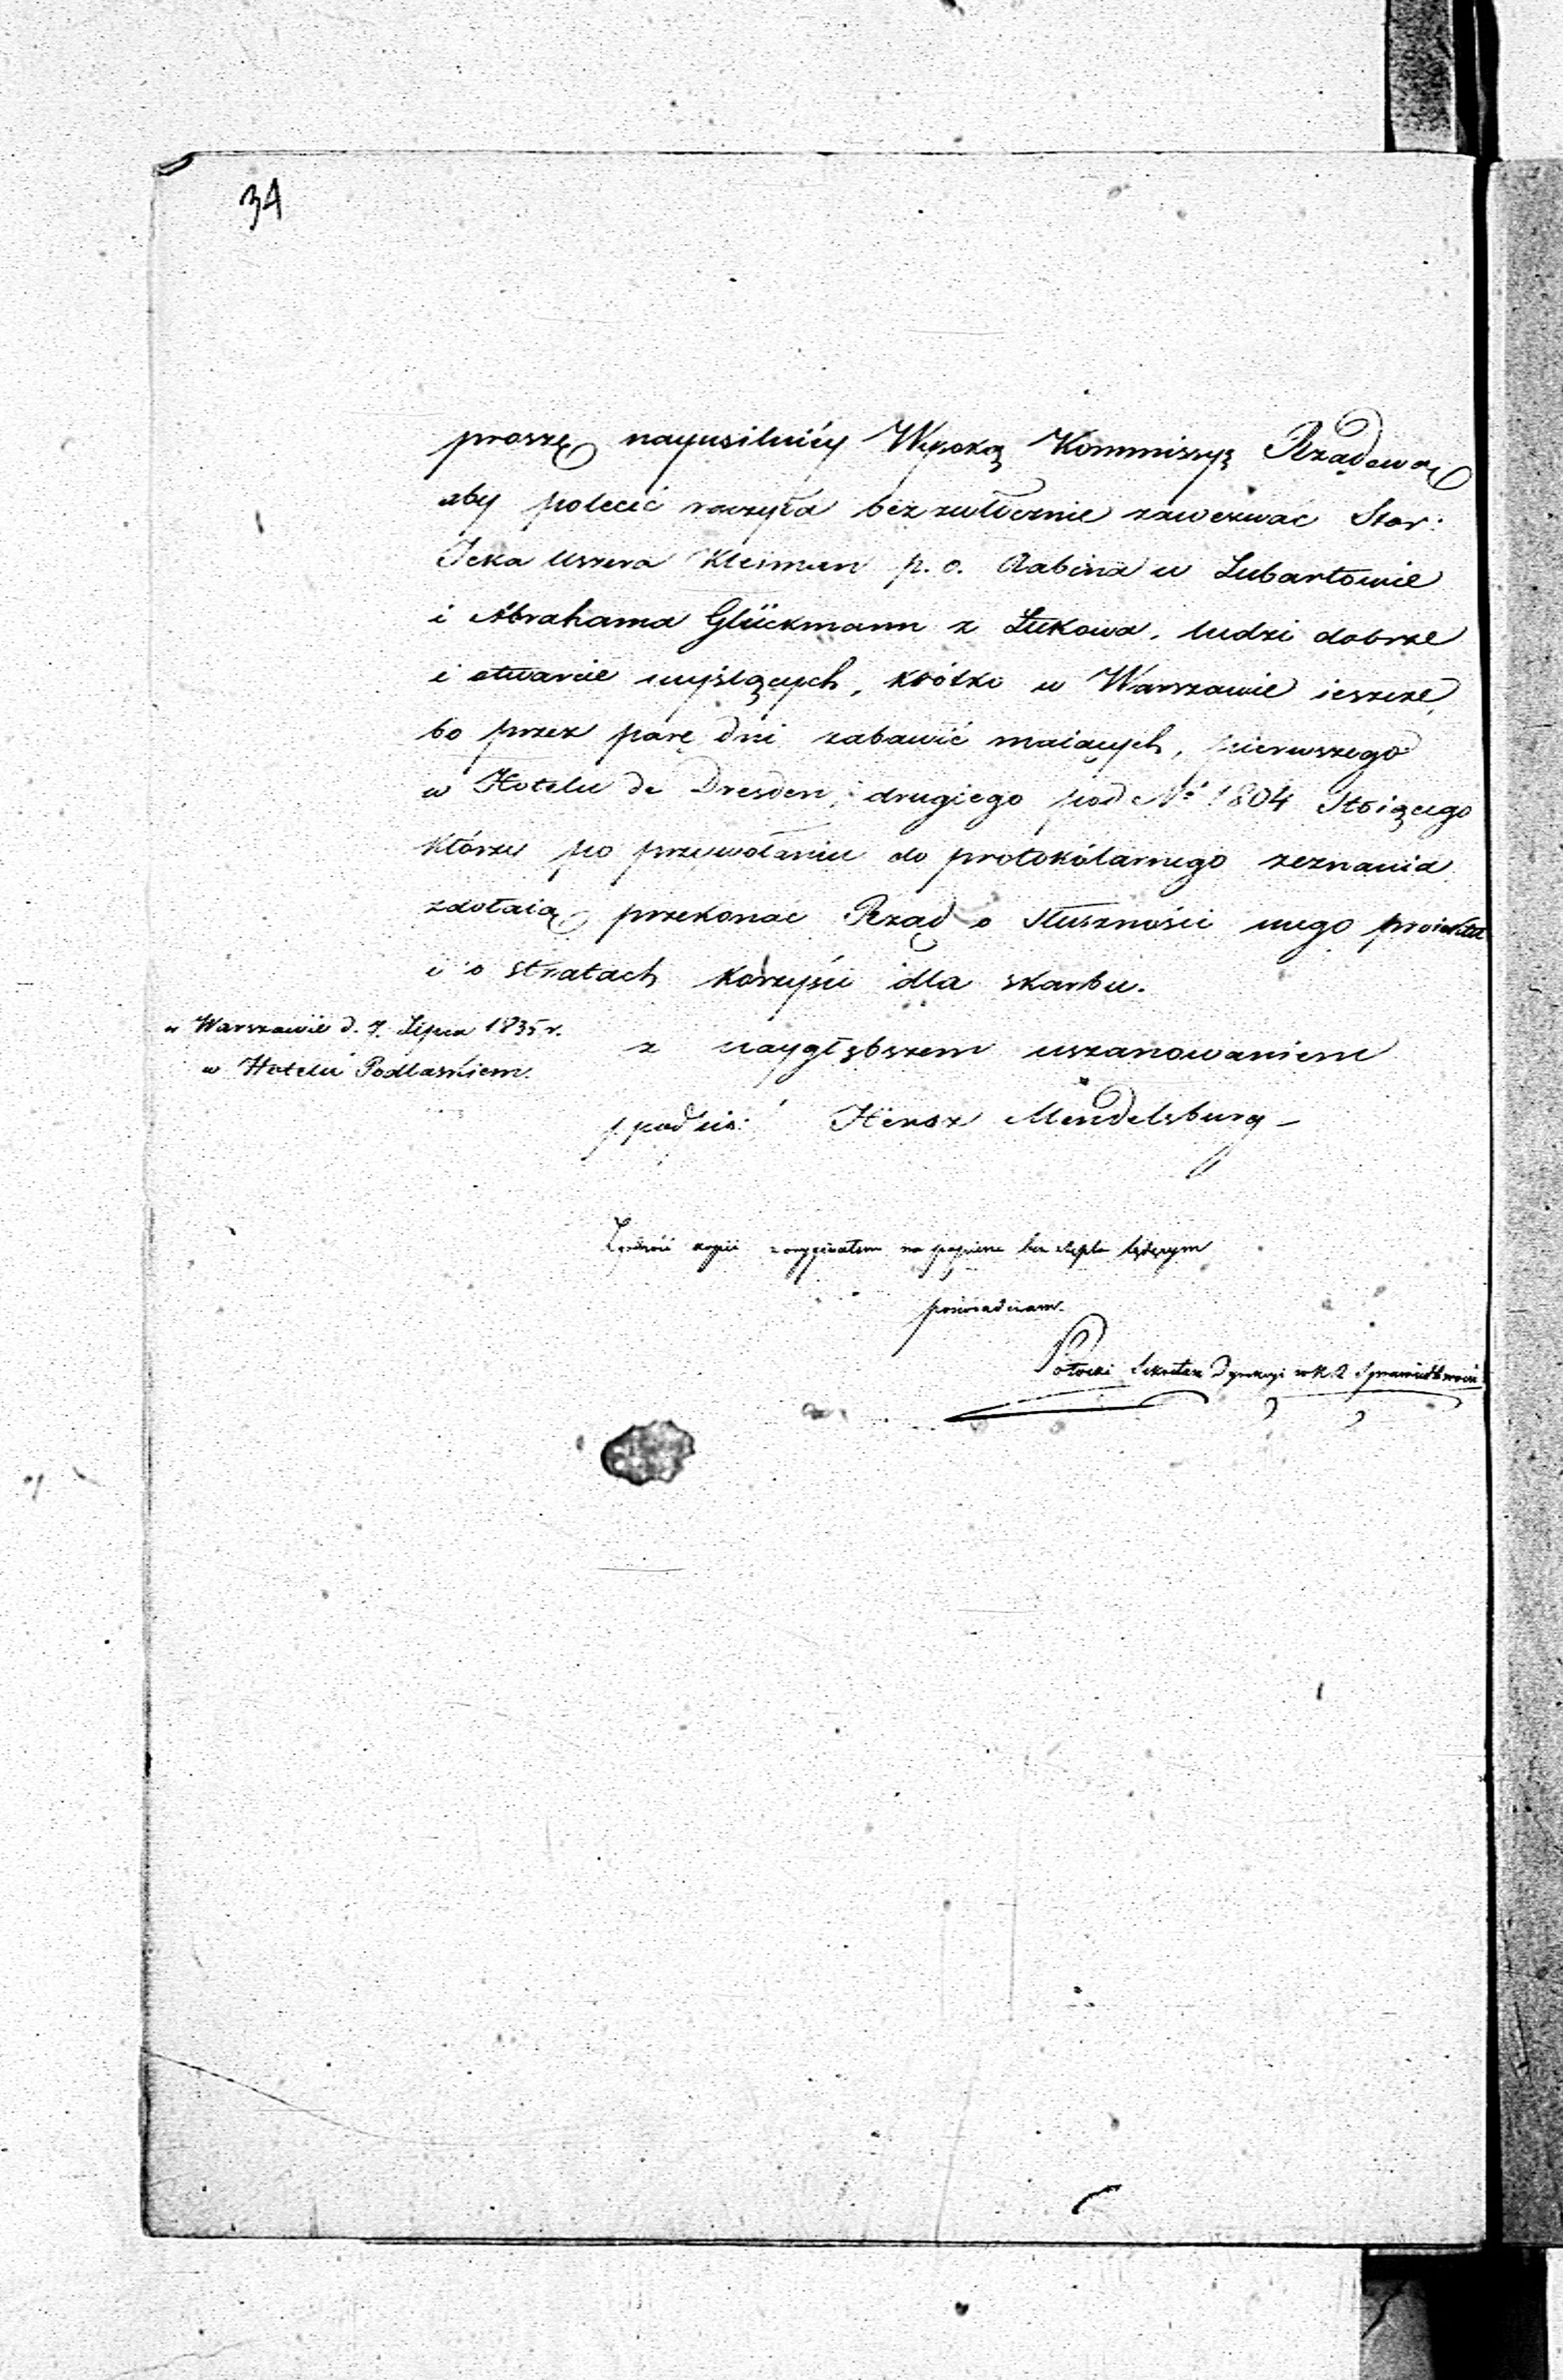 34
proszę nayusilniéy Wysoką Kommissyę Rządową
aby polecić raczyła bezzwłócznie zawezwać Star:
Icka Uszera Kleiman p. o. Rabina w Lubartowie
i Abrahama Glückmann z Łukowa, ludzi dobrze
i otwarcie myślących, krótko w Warszawie ieszcze,
bo przez parę dni zabawić maiących, pierwszego
w Hotelu de Dresden, drugiego pod No 1804 Stoiącego
którzy po przywołaniu do protokólarnego zeznania
zdołaią przekonać Rząd o słuszności mego proiektu
i o stratach korzyści dla skarbu.
w Warszawie d. 7. Lipca 1835 r.
w Hotelu Podlaskiem.
z naygłębszem uszanowaniem
podpis: Hersz Mendelsburg –
Zgodność kopii z oryginałem na papierze bez stępla będącym
poświadczam.
Potocki Sekretarz Dyrekcyi w K. R. Sprawiedliwości